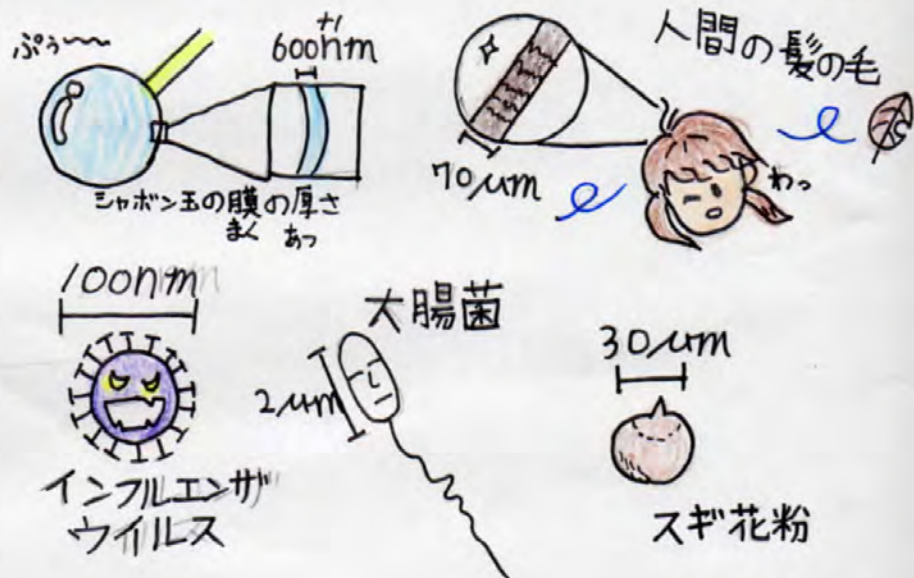 ぷぅ〜〜
ナノ
600nm
シャボン玉の膜の厚さ
まく あつ
人間の髪の毛
70μm
わっ
100nm
インフルエンザ
ウイルス
大腸菌
2μm
30μm
スギ花粉